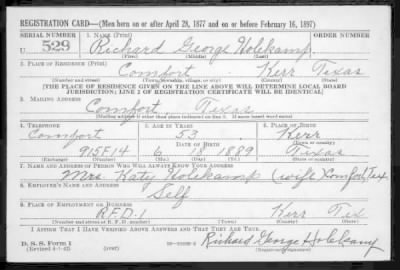 REGISTRATION CARD—(Men born on or after April 28, 1877 and on or before February 16, 1897)
SERIAL NUMBER 1. NAME (Print)
U 529 Richard George Holekamp
(First) (Middle) (Last)
2. PLACE OF RESIDENCE (Print)
Comfort Kerr Texas
(Number and street) (Town, township, village, or city) (County) (State)
[THE PLACE OF RESIDENCE GIVEN ON THE LINE ABOVE WILL DETERMINE LOCAL BOARD
JURISDICTION; LINE 2 OF REGISTRATION CERTIFICATE WILL BE IDENTICAL]
3. MAILING ADDRESS
Comfort, Texas
[Mailing address if other than place indicated on line 2. If same insert word same]
4. TELEPHONE 5. AGE IN YEARS 6. PLACE OF BIRTH
Comfort 53 Kerr
DATE OF BIRTH (Town or county)
915F14 6 18 1889 Texas
(Exchange) (Number) (Mo.) (Day) (Yr.) (State or country)
7. NAME AND ADDRESS OF PERSON WHO WILL ALWAYS KNOW YOUR ADDRESS
Mrs. Katy Holekamp (wife) Comfort, Tex
8. EMPLOYER'S NAME AND ADDRESS
Self
9. PLACE OF EMPLOYMENT OR BUSINESS
R.F.D.1 Kerr Tex
(Number and street or R. F. D. number) (Town) (County) (State)
I AFFIRM THAT I HAVE VERIFIED ABOVE ANSWERS AND THAT THEY ARE TRUE.
D. S. S. Form 1
(Revised 4-1-42) (over) Richard George Holekamp